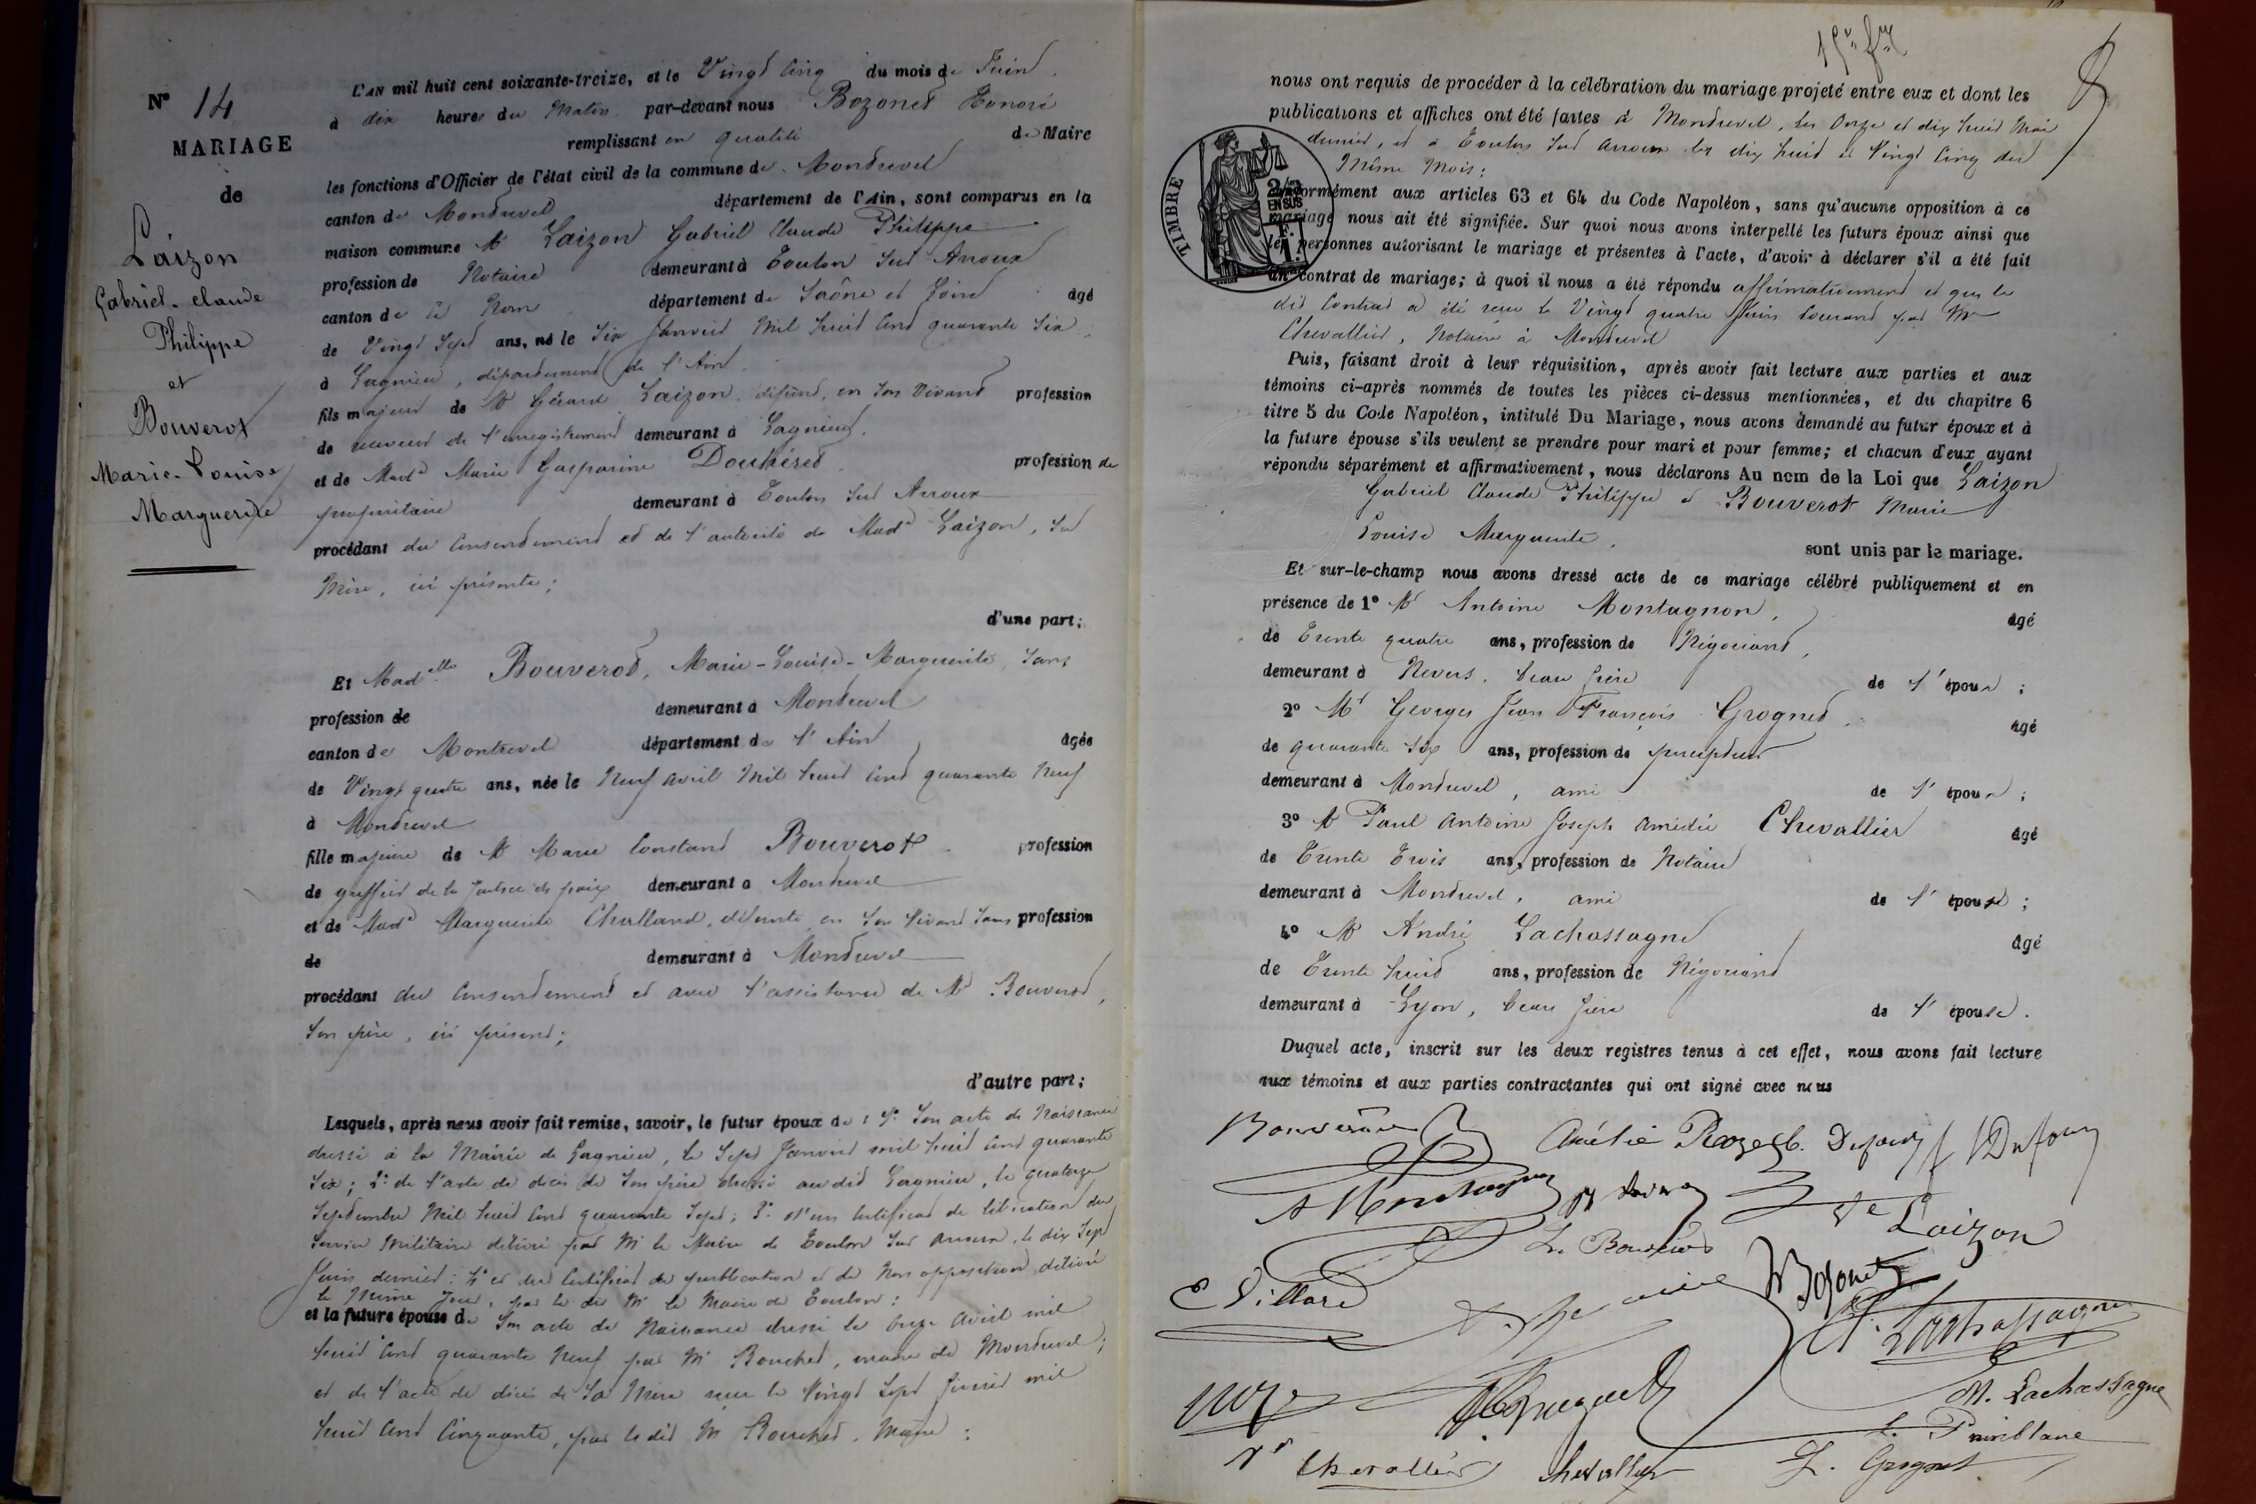 N° 14
MARIAGE
de
Laizon
Gabriel-Claude
Philippe
et
Bouverot
Marie-Louise
Marguerite
L'AN mil huit cent soixante-treize, et le Vingt Cinq du mois de Juin
à dix heures du Matin par-devant nous Bozonet Honoré
remplissant en qualité de Maire
les fonctions d'Officier de l'état civil de la commune de Montrevel
canton de Montrevel département de l'Ain, sont comparus en la
maison commune Mr Laizon Gabriel Claude Philippe
profession de Notaire demeurant à Toulon sur Arroux
canton de ce Nom département de Saône et Loire âgé
de Vingt Sept ans, né le Six Janvier Mil huit Cent quarante Six
à Lagnieu, département de l'Ain.
fils majeur de Mr Gérard Laizon, défunt, en son Vivant profession
de receveur de l'enregistrement demeurant à Lagnieu.
et de Made Marie Gasparine Douhéret profession de
propriétaire demeurant à Toulon sur Arroux
procédant du Consentement et de l'autorité de Made Laizon, sa
Mère, ici présente;
d'une part;
Et Madelle Bouverot, Marie-Louise-Marguerite, sans
profession de demeurant à Montrevel
canton de Montrevel département de l'Ain âgée
de Vingt quatre ans, née le Neuf avril Mil huit Cent quarante Neuf
à Montrevel
fille majeure de Mr Marie Constant Bouverot profession
de greffier de la Justice de paix demeurant à Montrevel
et de Made Marguerite Challand, défunte, en son Vivant sans profession
de demeurant à Montrevel
procédant du Consentement et avec l'assistance de Mr Bouverot,
son père, ici présent;
d'autre part;
Lesquels, après nous avoir fait remise, savoir, le futur époux de : 1° Son acte de Naissance
dressé à la Mairie de Lagnieu, le Sept Janvier mil huit Cent quarante
Six; 2° de l'acte de décès de Son père dressé audit Lagnieu, le quatorze
Septembre Mil huit Cent quarante Sept; 3° d'un Certificat de libération du
Service Militaire délivré par Mr le Maire de Toulon sur Arroux, le dix Sept
Juin dernier; 4° et du Certificat de publication et de Non opposition délivré
le Même jour, par le dit Mr le Maire de Toulon;
et la future épouse de Son acte de Naissance dressé le Onze Avril mil
huit Cent quarante Neuf par Mr Bouchet, maire de Montrevel;
et de l'acte de décès de Sa Mère reçu le Vingt Sept février mil
huit Cent Cinquante, par le dit Mr Bouchet, Maire;
nous ont requis de procéder à la célébration du mariage projeté entre eux et dont les
publications et affiches ont été faites à Montrevel, les Onze et dix huit Mai
dernier, et à Toulon sur Arroux les dix huit et Vingt Cinq du
Même Mois;
TIMBRE
2/10 EN SUS
1 F.
conformément aux articles 63 et 64 du Code Napoléon, sans qu'aucune opposition à ce
mariage nous ait été signifiée. Sur quoi nous avons interpellé les futurs époux ainsi que
les personnes autorisant le mariage et présentes à l'acte, d'avoir à déclarer s'il a été fait
un contrat de mariage; à quoi il nous a été répondu affirmativement et que le
dit Contrat a été reçu le Vingt quatre Juin Courant par Me
Chevallier, Notaire à Montrevel
Puis, faisant droit à leur réquisition, après avoir fait lecture aux parties et aux
témoins ci-après nommés de toutes les pièces ci-dessus mentionnées, et du chapitre 6
titre 5 du Code Napoléon, intitulé Du Mariage, nous avons demandé au futur époux et à
la future épouse s'ils veulent se prendre pour mari et pour femme; et chacun d'eux ayant
répondu séparément et affirmativement, nous déclarons Au nom de la Loi que Laizon
Gabriel Claude Philippe et Bouverot Marie
Louise Marguerite. sont unis par le mariage.
Et sur-le-champ nous avons dressé acte de ce mariage célébré publiquement et en
présence de 1° Mr Antoine Montagnon, âgé
de Trente quatre ans, profession de Négociant,
demeurant à Nevers, beau frère de l'époux;
2° Mr Georges Jean François Grognet âgé
de quarante Six ans, profession de percepteur
demeurant à Montrevel, ami de l'époux;
3° Mr Paul Antoine Joseph Amédée Chevallier âgé
de Trente Trois ans, profession de Notaire
demeurant à Montrevel, ami de l'épouse;
4° Mr André Lachassagne âgé
de Trente huit ans, profession de Négociant
demeurant à Lyon, beau frère de l'épouse.
Duquel acte, inscrit sur les deux registres tenus à cet effet, nous avons fait lecture
aux témoins et aux parties contractantes qui ont signé avec nous
Bouverot
Dufour
A Montagnon
Ve Laizon
L. Bouverot
C Villard
Bozonet
A. Lachassagne
M. Lachassagne
Chevallier
Chevallier